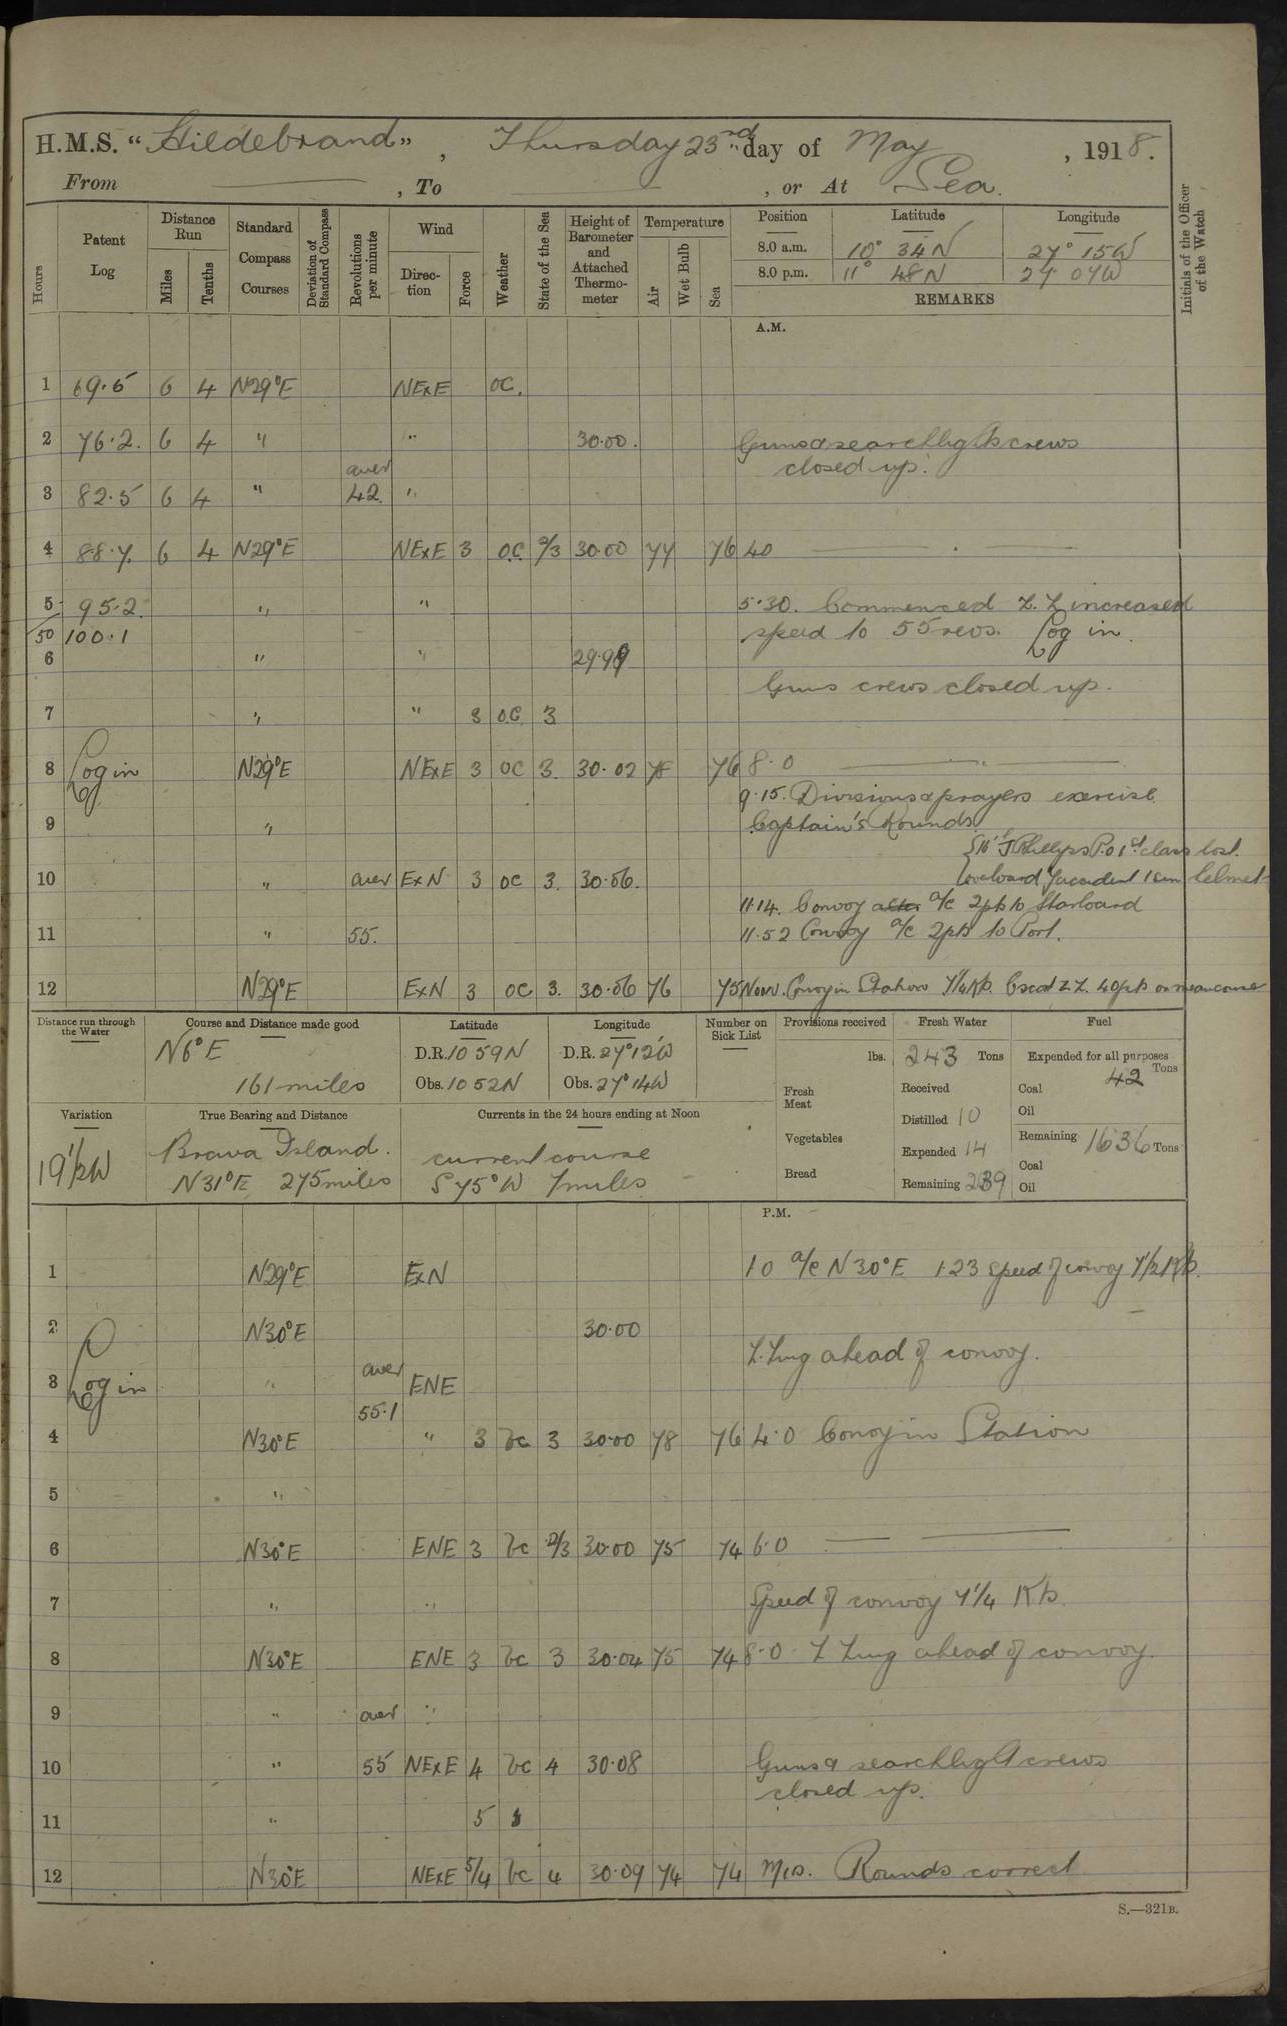 H.M.S. "Hildebrand", Thursday 23rd day of May, 1918.
From ——, To , or At Sea.
Hours
Patent Log
Distance Run
Miles
Tenths
Standard Compass Courses
Deviation of Standard Compass
Revolutions per minute
Wind
Direction
Force
Weather
State of the Sea
Height of Barometer and Attached Thermometer
Temperature
Air
Wet Bulb
Sea
Position Latitude Longitude
8.0 a.m. 10° 34N 27° 15W
8.0 p.m. 11° 48N 27° 07W
REMARKS
Initials of the Officer of the Watch
A.M.
1 69.5 6 4 N29°E NExE oc.
2 76.2. 6 4 " " 30.00. Guns & searchlight crews
closed up.
aver
3 82.5 6 4 " 42. "
4 88.7. 6 4 N29°E NExE 3 o.c. 2/3 30.00 77 76 4.0 — " —
5 95.2. " " 5.30. Commenced Z.Z increased
50 100.1 speed to 55 revs. Log in.
6 " " 29.99
Guns crews closed up.
7 " " 3 o.c. 3
8 Log in N29°E NExE 3 oc 3. 30.02 78 76 8.0 — " —
9.15. Divisions & prayers exercise
9 " Captain's Rounds.
J Phillips P.O 1st class lost
overboard by accident 1 sun helmet
10 " aver ExN 3 oc 3. 30.06.
11.14. Convoy alter a/c 2pts to Starboard
11 " 55. 11.52 Convoy a/c 2pts to Port.
12 N29°E ExN 3 oc 3. 30.06 76 75 Noon. Convoy in Station 7¼ Kts. Cscd Z Z. 40pts on mean course
Distance run through the Water
Course and Distance made good
N6°E
161 miles
Latitude
D.R. 10 59N
Obs. 10 52N
Longitude
D.R. 27° 12'W
Obs. 27° 14W
Number on Sick List
Provisions received
lbs.
Fresh Meat
Vegetables
Bread
Fresh Water
243 Tons
Received
Distilled 10
Expended 14
Remaining 239
Fuel
Expended for all purposes
42 Tons
Coal
Oil
Remaining 1636 Tons
Coal
Oil
Variation
19½W
True Bearing and Distance
Brava Island.
N31°E 275 miles
Currents in the 24 hours ending at Noon
current course
S 75°W 7 miles
P.M.
1 N29°E ExN 1.0 a/c N30°E 1.23 Speed of convoy 7½ Kts.
2 N30°E 30.00
Z.Zing ahead of convoy.
aver
3 Log in " ENE
55.1
4 N30°E " 3 bc 3 30.00 78 76 4.0 Convoy in Station
5 "
6 N30°E ENE 3 bc 2/3 30.00 75 74 6.0 — —
7 " " Speed of convoy 7¼ Kts.
8 N30°E ENE 3 bc 3 30.04 75 74 8.0 Z Zing ahead of convoy.
9 " aver "
10 " 55 NExE 4 bc 4 30.08 Guns & searchlight crews
closed up.
11 " 5
12 N30°E NExE 5/4 bc 4 30.09 74 74 Mid. Rounds correct
S.—321B.